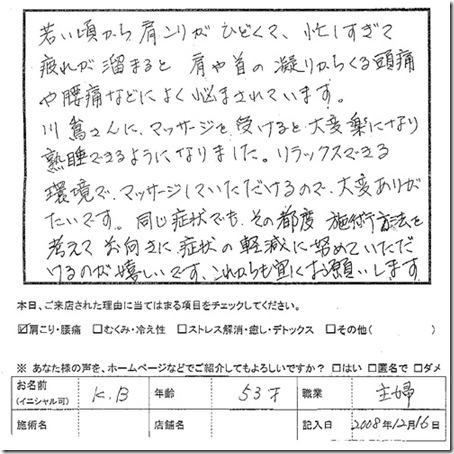 若い頃から肩こりがひどくて、忙しすぎて
疲れが溜まると肩や首の凝りからくる頭痛
や腰痛などによく悩まされています。
川嶌さんに、マッサージを受けると大変楽になり
熟睡できるようになりました。リラックスできる
環境で、マッサージしていただけるので、大変ありが
たいです。同じ症状でも、その都度 施術方法を
考えて 症状の軽減に努めていただ
けるのが嬉しいです、これからも宜しくお願いします
本日、ご来店された理由に当てはまる項目をチェックしてください。
☑肩こり・腰痛 □むくみ・冷え性 □ストレス解消・癒し・デトックス □その他( )
※ あなた様の声を、ホームページなどでご紹介してもよろしいですか？ □はい □匿名で □ダメ
お名前 (イニシャル可) K.B 年齢 53才 職業 主婦
施術名 店舗名 記入日 2008年12月16日